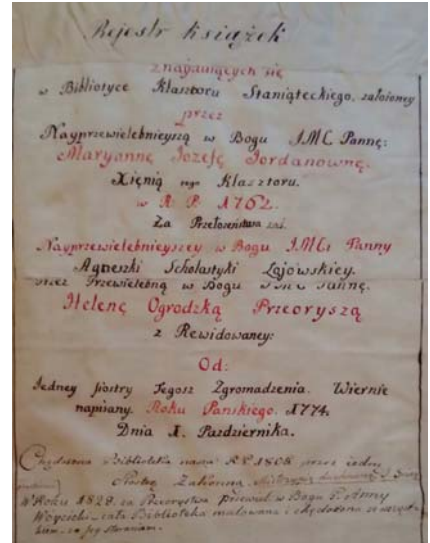 Rejestr książek
znayduiących się
w Bibliotyce Klasztoru Staniąteckiego, założoney
przez
Nayprzewielebnieyszą w Bogu JMC Pannę:
Maryannę Jozefę Jordanownę.
Xięnią tego Klasztoru.
w R. P. 1762.
Za Przełozeństwa zaś.
Nayprzewielebnieyszey w Bogu JMCi Panny
Agneszki Scholastyki Łajowskiey.
przez Przewielebną w Bogu JMC Pannę.
Helenę Ogrodzką Przeoryszą
z Rewidowaney:
Od:
Iedney siostry Tegosz Zgromadzenia. Wiernie
napisany. Roku Panskiego. 1774.
Dnia 1. Pazdziernika.
Biblioteka nasza R.P. 1808 przez iedną
Siostrę Zakonną
W Roku 1829. za Przeorystwa Przewiel. w Bogu P. Anny
Woycicki cała Biblioteka malowana i
staraniem.